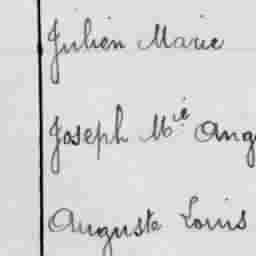 Julien Marie
Joseph Mie Ang
Auguste Louis